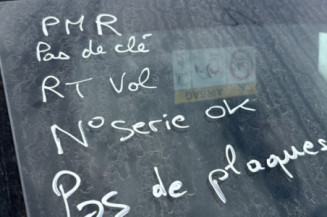 PMR
Pas de clé
RT Vol
N° serie OK
Pas de plaques
AIRBAG